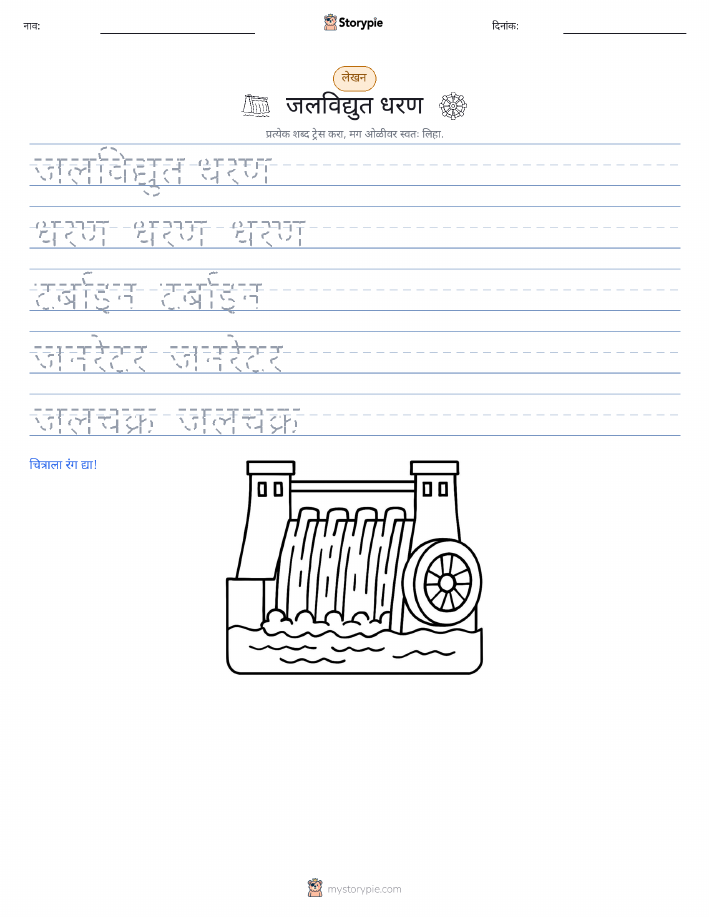 नाव:
Storypie
दिनांक:
लेखन
जलविद्युत धरण
प्रत्येक शब्द ट्रेस करा, मग ओळीवर स्वतः लिहा.
जलविद्युत धरण
धरण धरण धरण
टर्बाइन टर्बाइन
जनरेटर जनरेटर
जलचक्र जलचक्र
चित्राला रंग द्या!
mystorypie.com